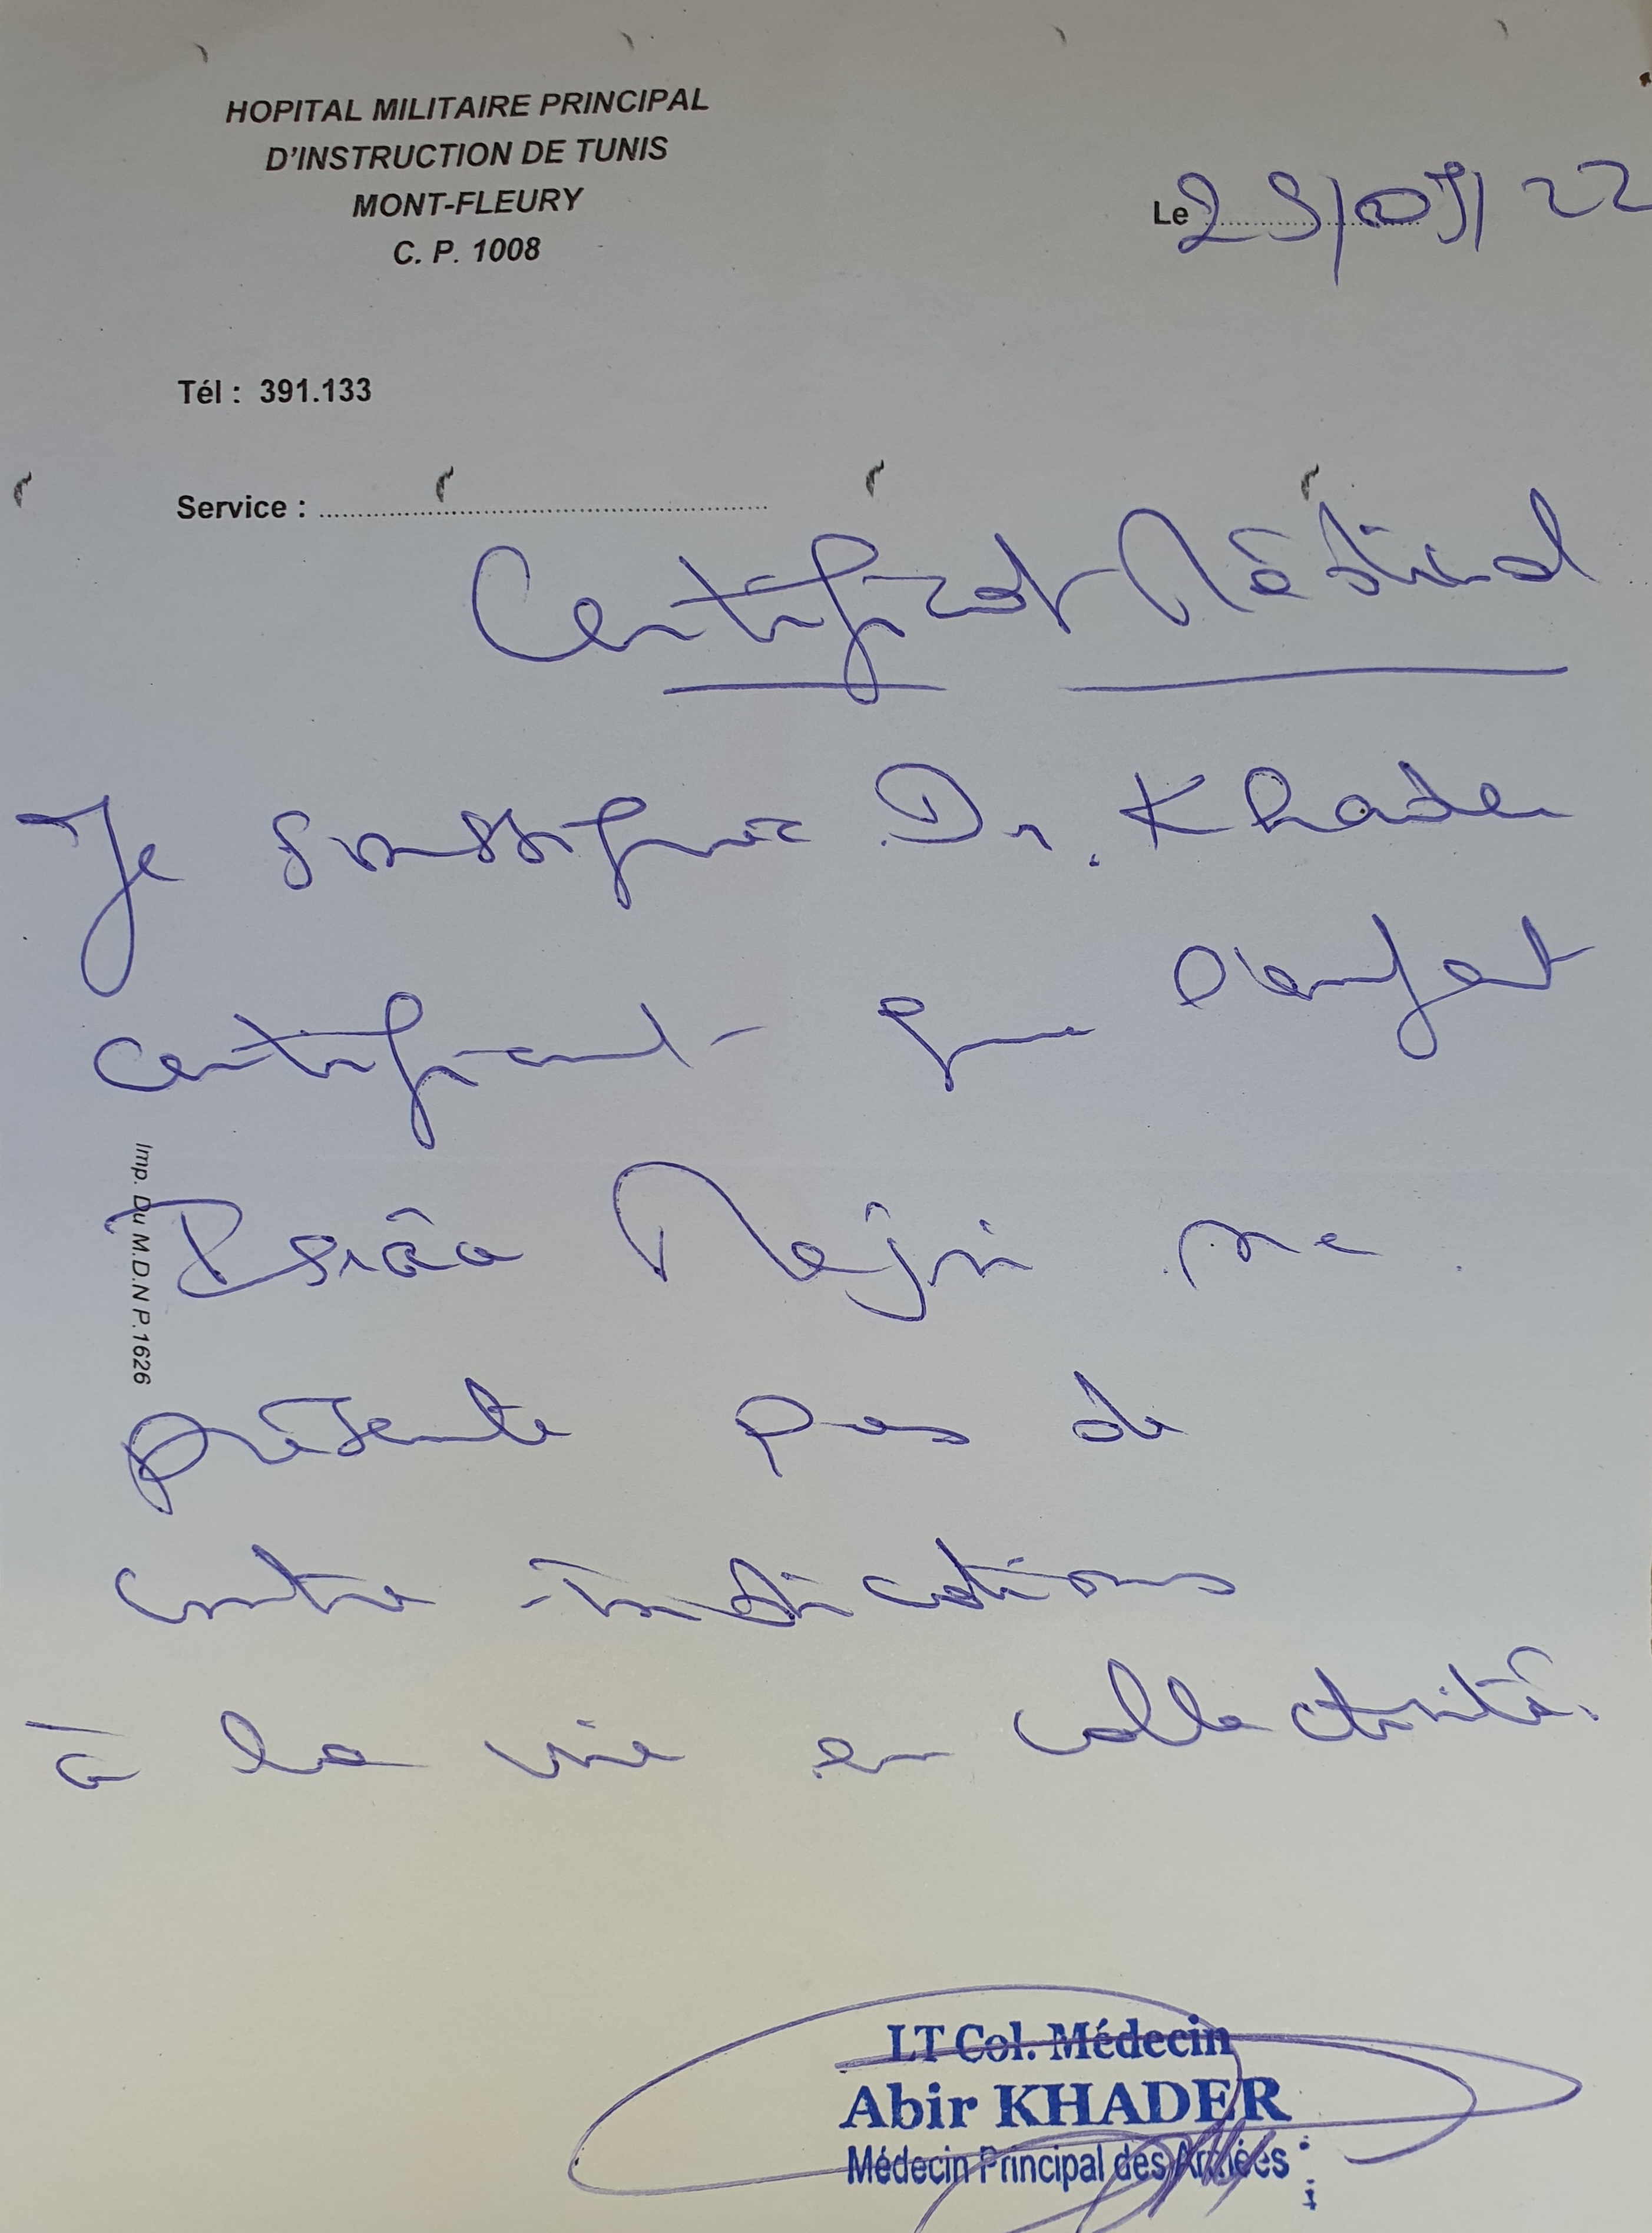 HOPITAL MILITAIRE PRINCIPAL
D'INSTRUCTION DE TUNIS
MONT-FLEURY
C. P. 1008
Le 29/09/22
Tél : 391.133
Service :
Certificat Médical
Je soussignée Dr. Khader
certifiant que l'enfant
Nejri ne
présente pas de
contre-indications
à la vie en collectivité.
Imp. Du M.D.N P.1626
LT Col. Médecin
Abir KHADER
Médecin Principal des Armées